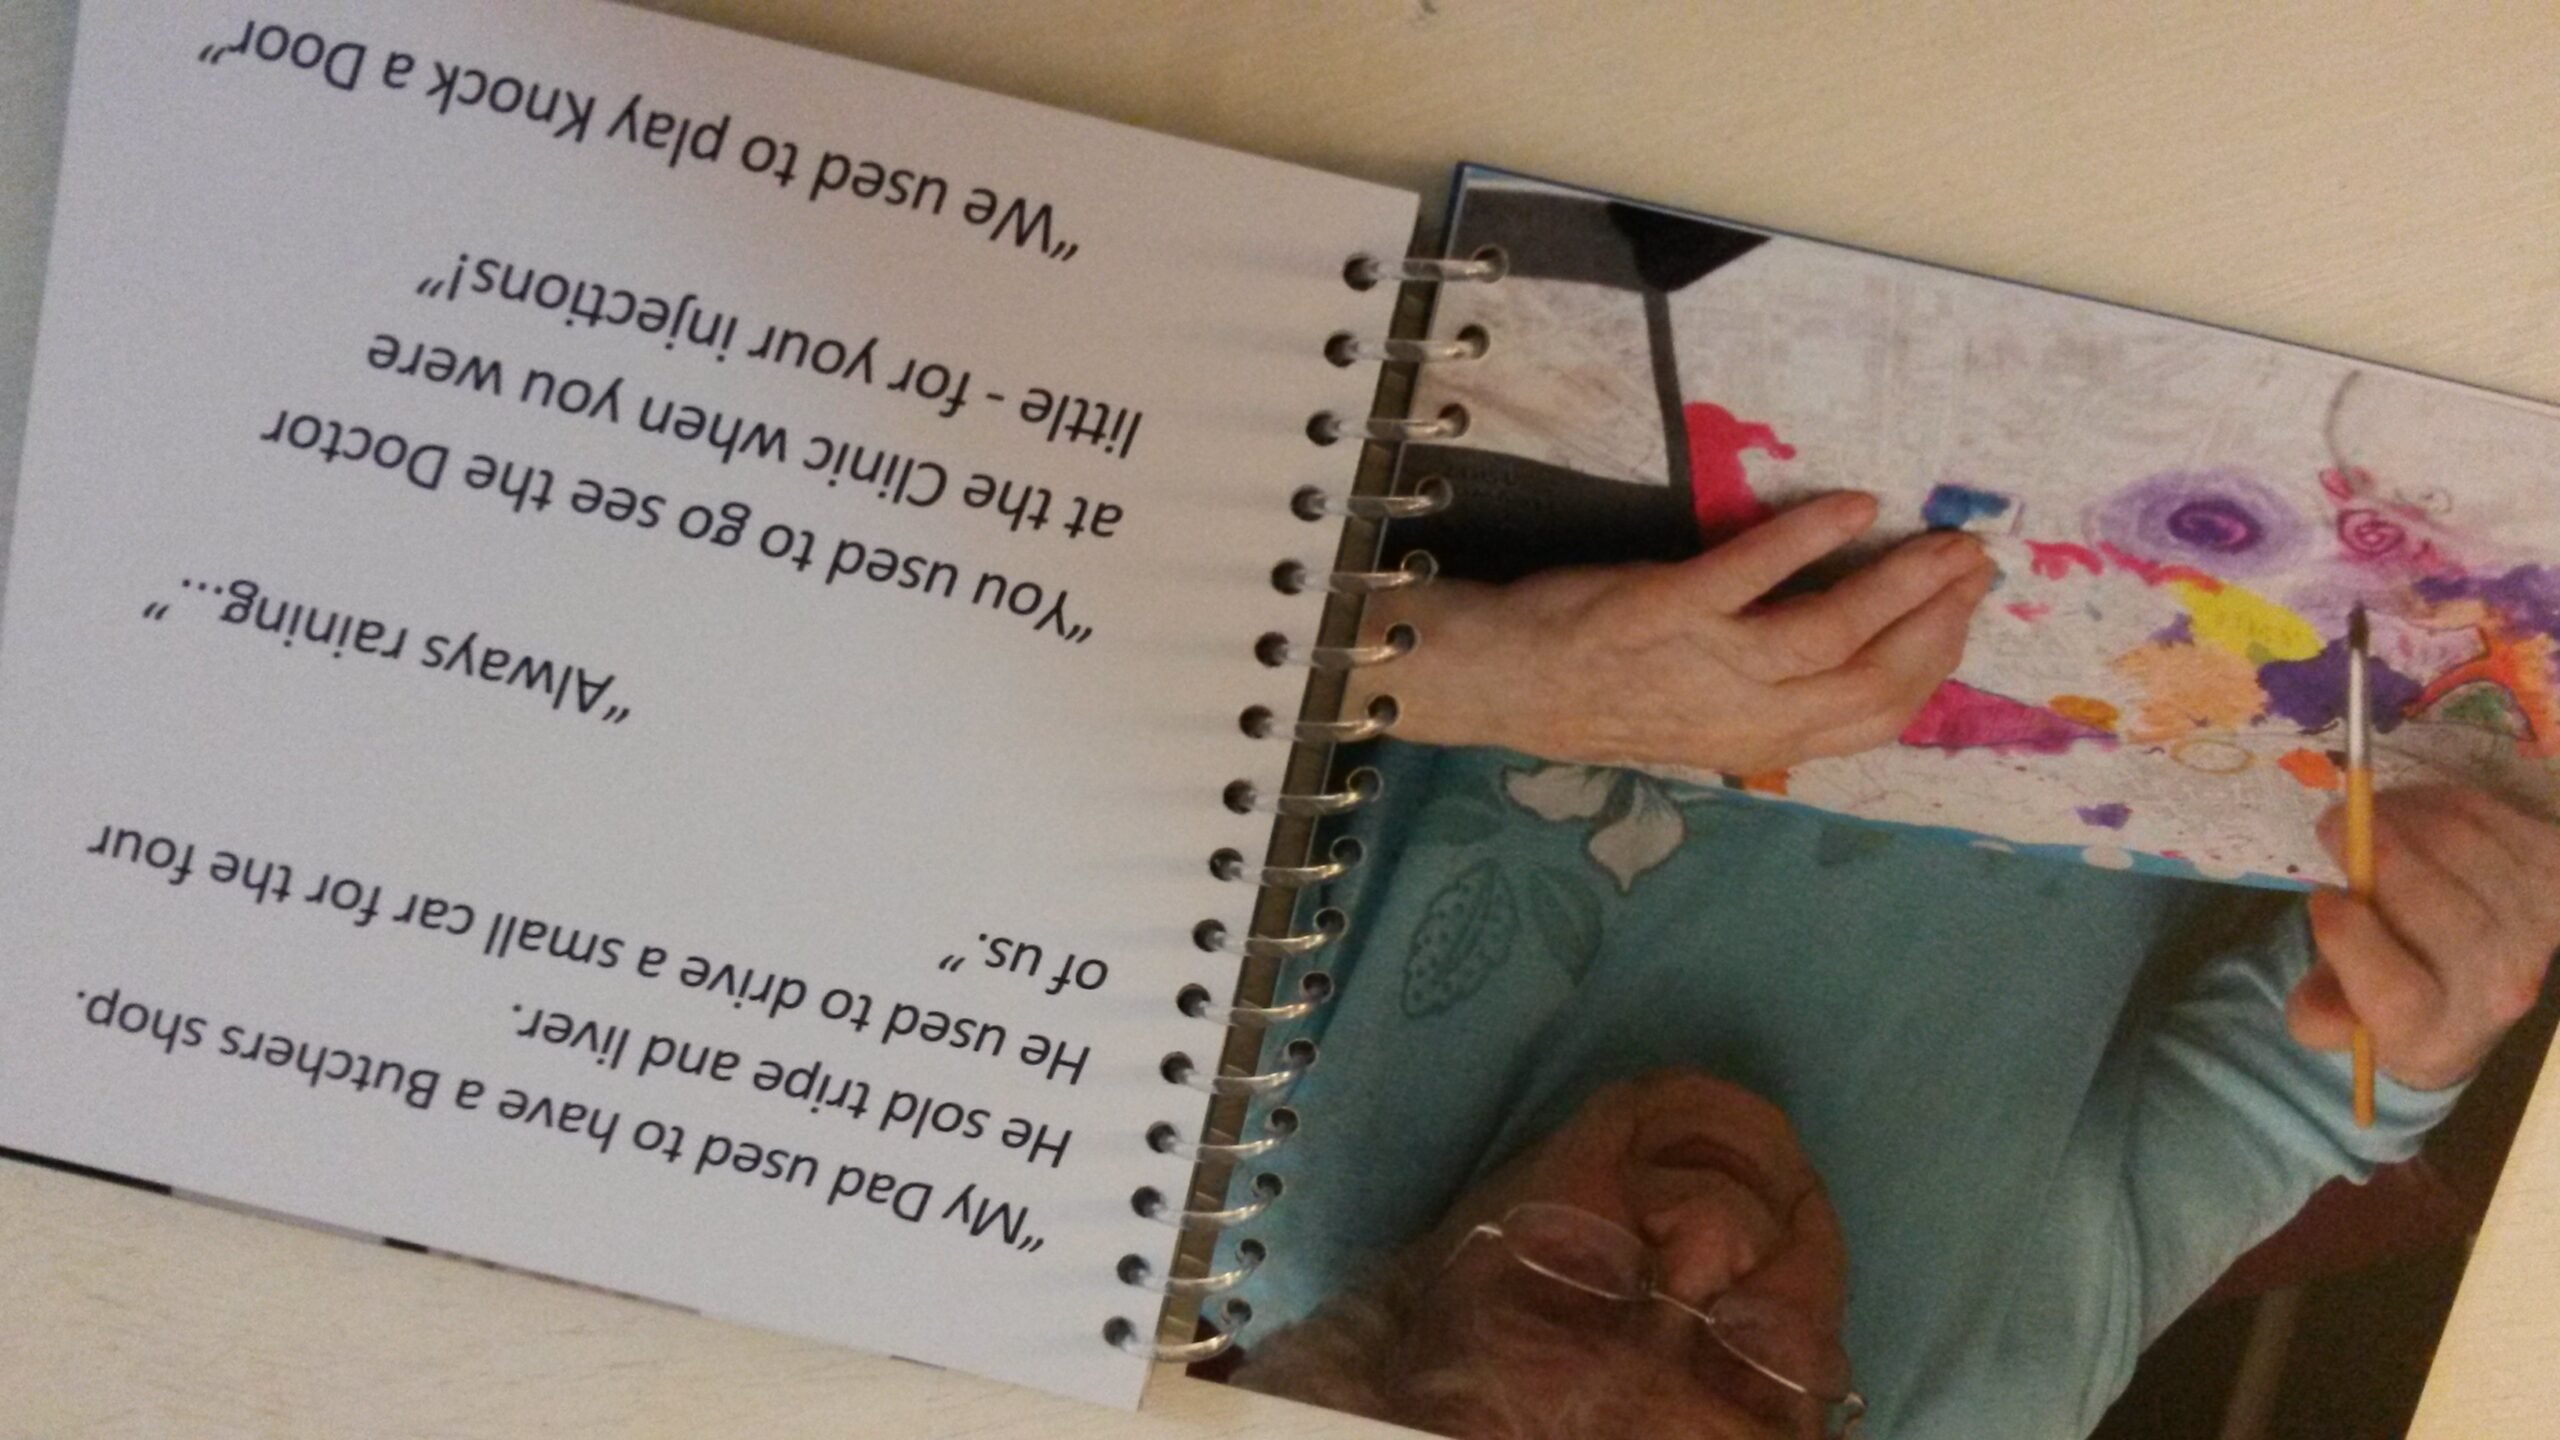 “My Dad used to have a Butchers shop.
He sold tripe and liver.
He used to drive a small car for the four
of us. ”
“Always raining... ”
“You used to go see the Doctor
at the Clinic when you were
little - for your injections!”
“We used to play Knock a Door”